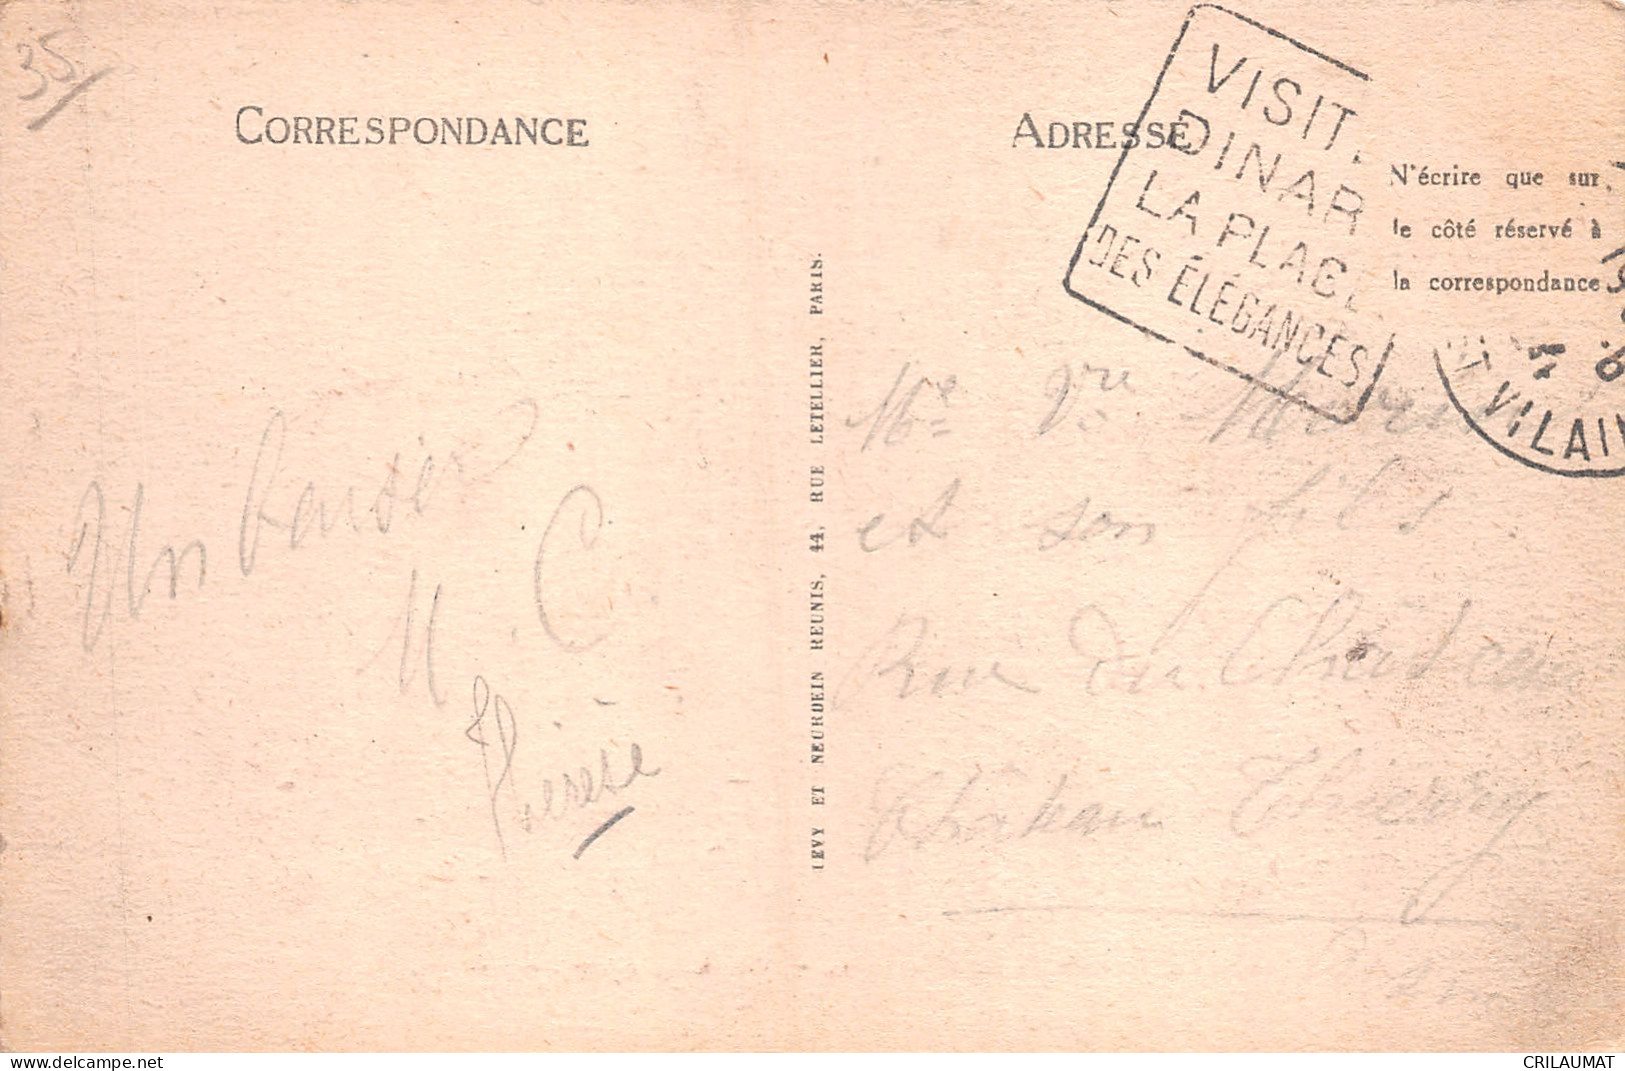 35/
CORRESPONDANCE
ADRESSE
N'écrire que sur
le côté réservé à
la correspondance
VISIT
DINAR
LA PLAGE
DES ÉLÉGANCES
VILAIN
LEVY ET NEURDEIN REUNIS, 44, RUE LETELLIER, PARIS.
Un baiser
M. C
Thérèse
Mme Vve
et son fils
Rue du Château
Château Thierry
www.delcampe.net
CRILAUMAT